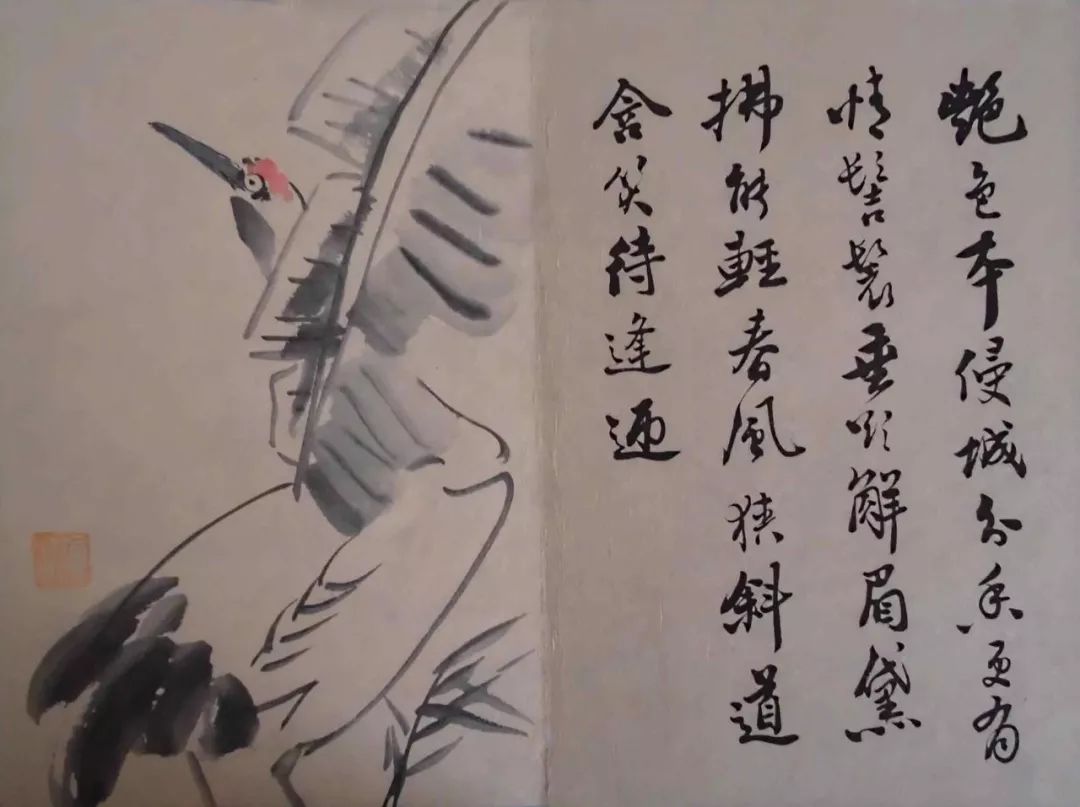 艷色本侵城分香更有
情髻鬟垂欲解眉黛
拂能輕春風狹斜道
含笑待逢迎